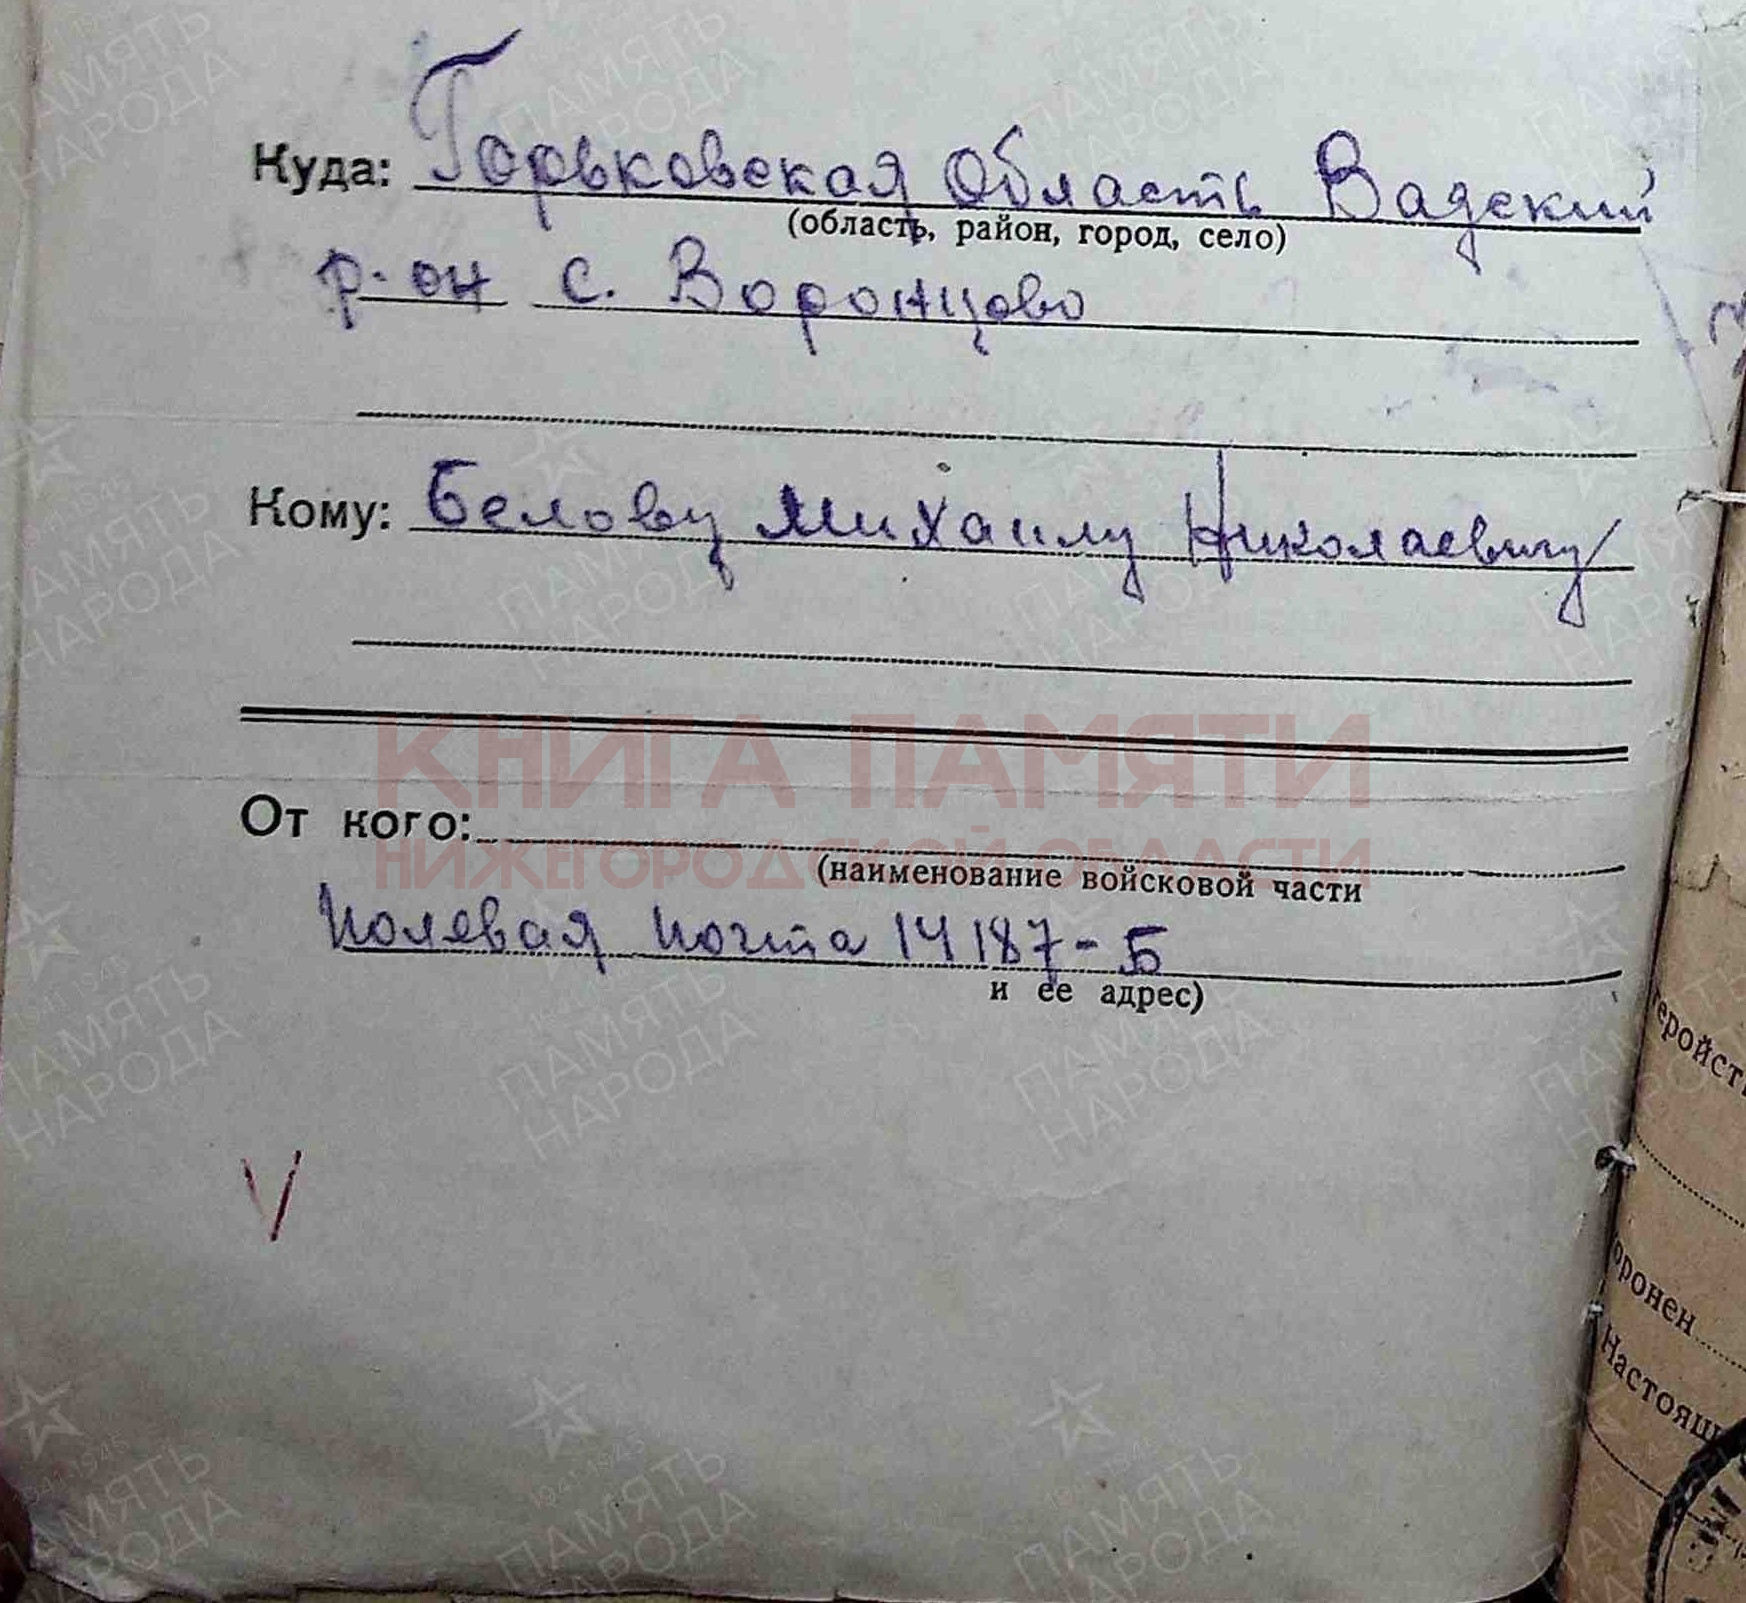 Куда: Горьковская Область Вадский
(область, район, город, село)
р-он с. Воронцово
Кому: Белову Михаилу Николаевичу
КНИГА ПАМЯТИ
От кого:
НИЖЕГОРОДСКОЙ ОБЛАСТИ
(наименование войсковой части
Полевая почта 14187-Б
и ее адрес)
геройст
оронен
Настоящ
ПАМЯТЬ
НАРОДА
1941-1945